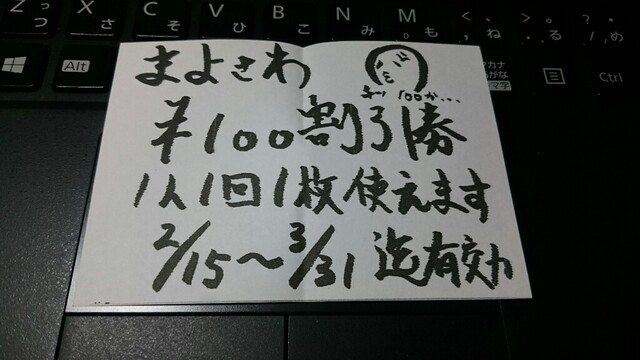 Z っ つ
X さ
C そ
V ひ
B こ
N み
M も
< 、 , ね
> 。 . る
? ・ / め
Alt
カタカナ
ひらがな
ローマ字
Ctrl
まよさわ
100か…
¥100割引券
1人1回1枚使えます
2/15〜3/31迄有効